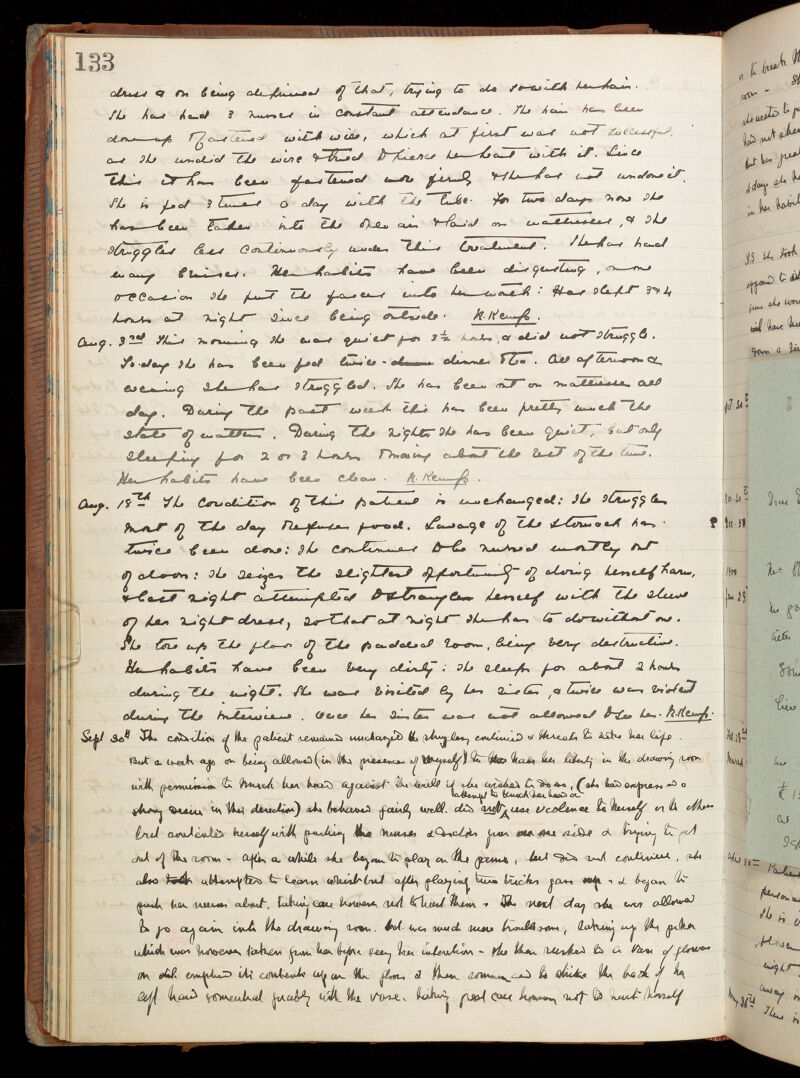 133
dress & on being deprived of that, trying to do so with her hair.
She has had 3 nurses in constant attendance. The hair has been
done up & fastened with wire, which at first was not successful,
as she undid the wire & tried to pierce her heart with it. Since
this it has been fastened more firmly & she has not undone it.
She is fed 3 times a day with the tube. For two days now she
has been taken into the open air & laid on mattresses, & she
struggles less continuously under this treatment. She has had
many bruises. Her habits have been disgusting, on one
occasion she put the faeces into her mouth: Has slept 3 or 4
hours at night since being outside. N. Kemp.
Aug. 3rd This morning she was quiet for 3½ hours, & did not struggle.
To-day she has been fed twice - dinner & tea. All afternoon &
evening she has struggled. She has been out on mattresses all
day. During the past week this has been pretty much the
state of matters. During the nights she has been quiet, but only
sleeping for 2 or 3 hours & moving about the rest of the time.
Her habits have been clean. N. Kemp.
Aug. 18th The condition of this patient is unchanged: she struggles
most of the day & refuses food. Lavage of the stomach has
twice been done: she continues to be nursed mostly out
of doors: she seizes the slightest opportunity of doing herself harm,
& last night attempted to strangle herself with the sleeve
of her night dress, so that at night she has to do without one.
She tore up the floor of the padded room, being very destructive.
Her habits have been very dirty: she sleeps for about 2 hours
during the night. She was visited by her sister, & twice was violent
during the interview. Once her sister was not allowed to see her. N. Kemp.
Sept 30th The condition of the patient remained unchanged the struggles continued & threats to take her life.
But a week ago on being allowed (in the presence of myself) to have her liberty in the drawing room
with permission to knock her head against the wall if she wished to do so, (she had expressed a
strong desire in this direction) she behaved fairly well. did not attempt to knock her head or use violence to herself or to others
but contented herself with pushing the nurses & doctors from one side & trying to get
out of the room - after a while she began to play on the piano, but did not continue, she
also attempted to learn whist but after playing two tricks gave up - & began to
push her nurses about, taking care however not to hurt them. The next day she was allowed
to go again into the drawing room. but was much more troublesome, taking up the poker
which was however taken from her before seeing her intention - she then rushed to a vase of flowers
emptied its contents upon the floor & then commenced to strike the back of her
left hand somewhat forcibly with the vase. taking great care however not to hurt herself